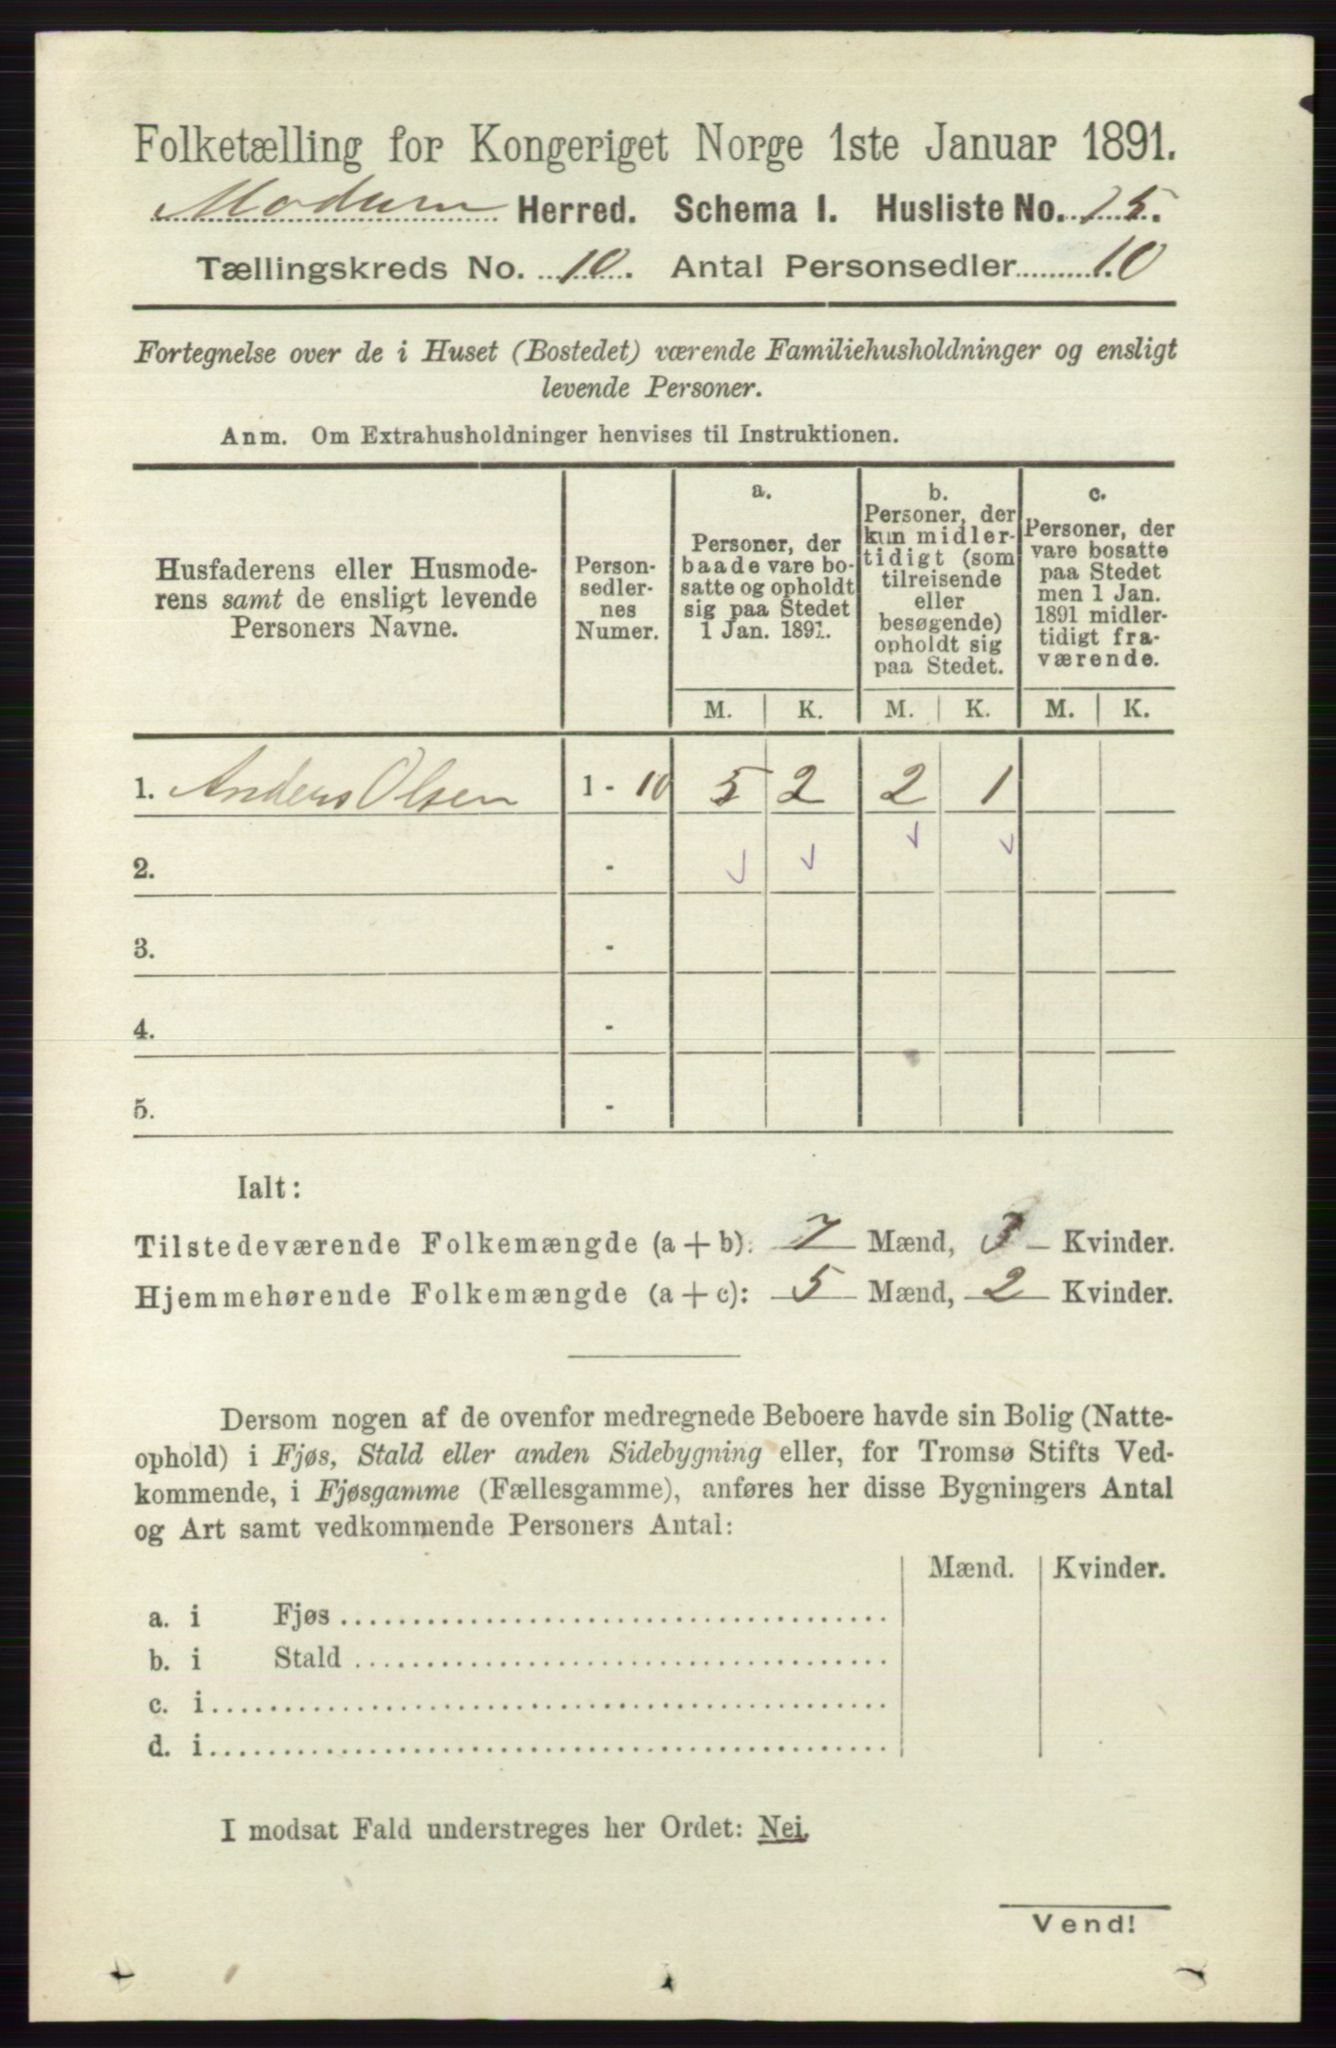 Folketælling for Kongeriget Norge 1ste Januar 1891.
Modum Herred. Schema I. Husliste No. 75.
Tællingskreds No. 10. Antal Personsedler 10
Fortegnelse over de i Huset (Bostedet) værende Familiehusholdninger og ensligt
levende Personer.
Anm. Om Extrahusholdninger henvises til Instruktionen.
Husfaderens eller Husmode-
rens samt de ensligt levende
Personers Navne.
Person-
sedler-
nes
Numer.
a.
Personer, der
baade vare bo-
satte og opholdt
sig paa Stedet
1 Jan. 1891.
b.
Personer, der
kun midler-
tidigt (som
tilreisende
eller
besøgende)
opholdt sig
paa Stedet.
c.
Personer, der
vare bosatte
paa Stedet
men 1 Jan.
1891 midler-
tidigt fra-
værende.
M. K. M. K. M. K.
1. Anders Olsen 1 - 10 5 2 2 1
2. -
3. -
4. -
5. -
Ialt:
Tilstedeværende Folkemængde (a + b): 7 Mænd, 3 Kvinder.
Hjemmehørende Folkemængde (a + c): 5 Mænd, 2 Kvinder.
Dersom nogen af de ovenfor medregnede Beboere havde sin Bolig (Natte-
ophold) i Fjøs, Stald eller anden Sidebygning eller, for Tromsø Stifts Ved-
kommende, i Fjøsgamme (Fællesgamme), anføres her disse Bygningers Antal
og Art samt vedkommende Personers Antal:
Mænd. Kvinder.
a. i Fjøs
b. i Stald
c. i
d. i
I modsat Fald understreges her Ordet: Nei.
Vend!